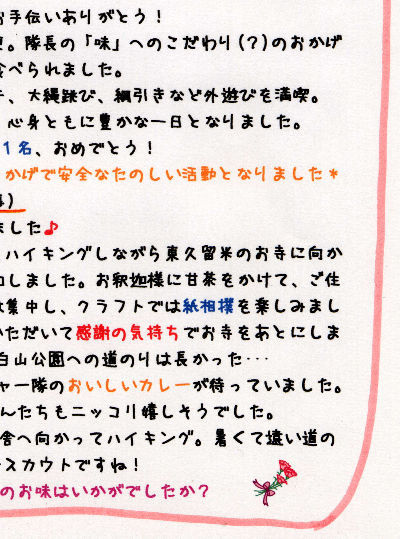 お手伝いありがとう！
。隊長の「味」へのこだわり(？)のおかげ
食べられました。
、大縄跳び、綱引きなど外遊びを満喫。
心身ともに豊かな一日となりました。
１名、おめでとう！
かげで安全なたのしい活動となりました＊
）
ました♪
ハイキングしながら東久留米のお寺に向か
加しました。お釈迦様に甘茶をかけて、ご住
集中し、クラフトでは紙相撲を楽しみまし
いただいて感謝の気持ちでお寺をあとにしま
白山公園への道のりは長かった…
ャー隊のおいしいカレーが待っていました。
んたちもニッコリ嬉しそうでした。
舎へ向かってハイキング。暑くて遠い道の
スカウトですね！
のお味はいかがでしたか？